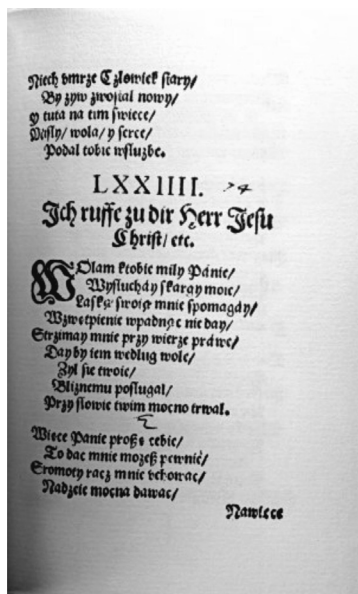 Niech vmrze Człowiek stary/
By zyw zwostal nowy/
y tuta na tim swiece/
Mysly/ wola/ y serce/
Podal tobie wsluzbe.
LXXIIII. 74
Ich ruffe zu dir Herr Jesu
Christ/ etc.
WOlam ktobie mily Pánie/
Wysluchay skargy moie/
Laską swoią mnie spomagay/
Wzwętpienie wpadnąc nie day/
Strzimay mnie przy wierze práwe/
Day by iem wedlug wole/
Zyl sie twoie/
Bliznemu poslugal/
Przy slowie twim mocno trwal.
Więce Panie proszę cebie/
To dac mnie możeß pewnie/
Sromoty racz mnie
Nadzeie mocna dawac/
Nawięce